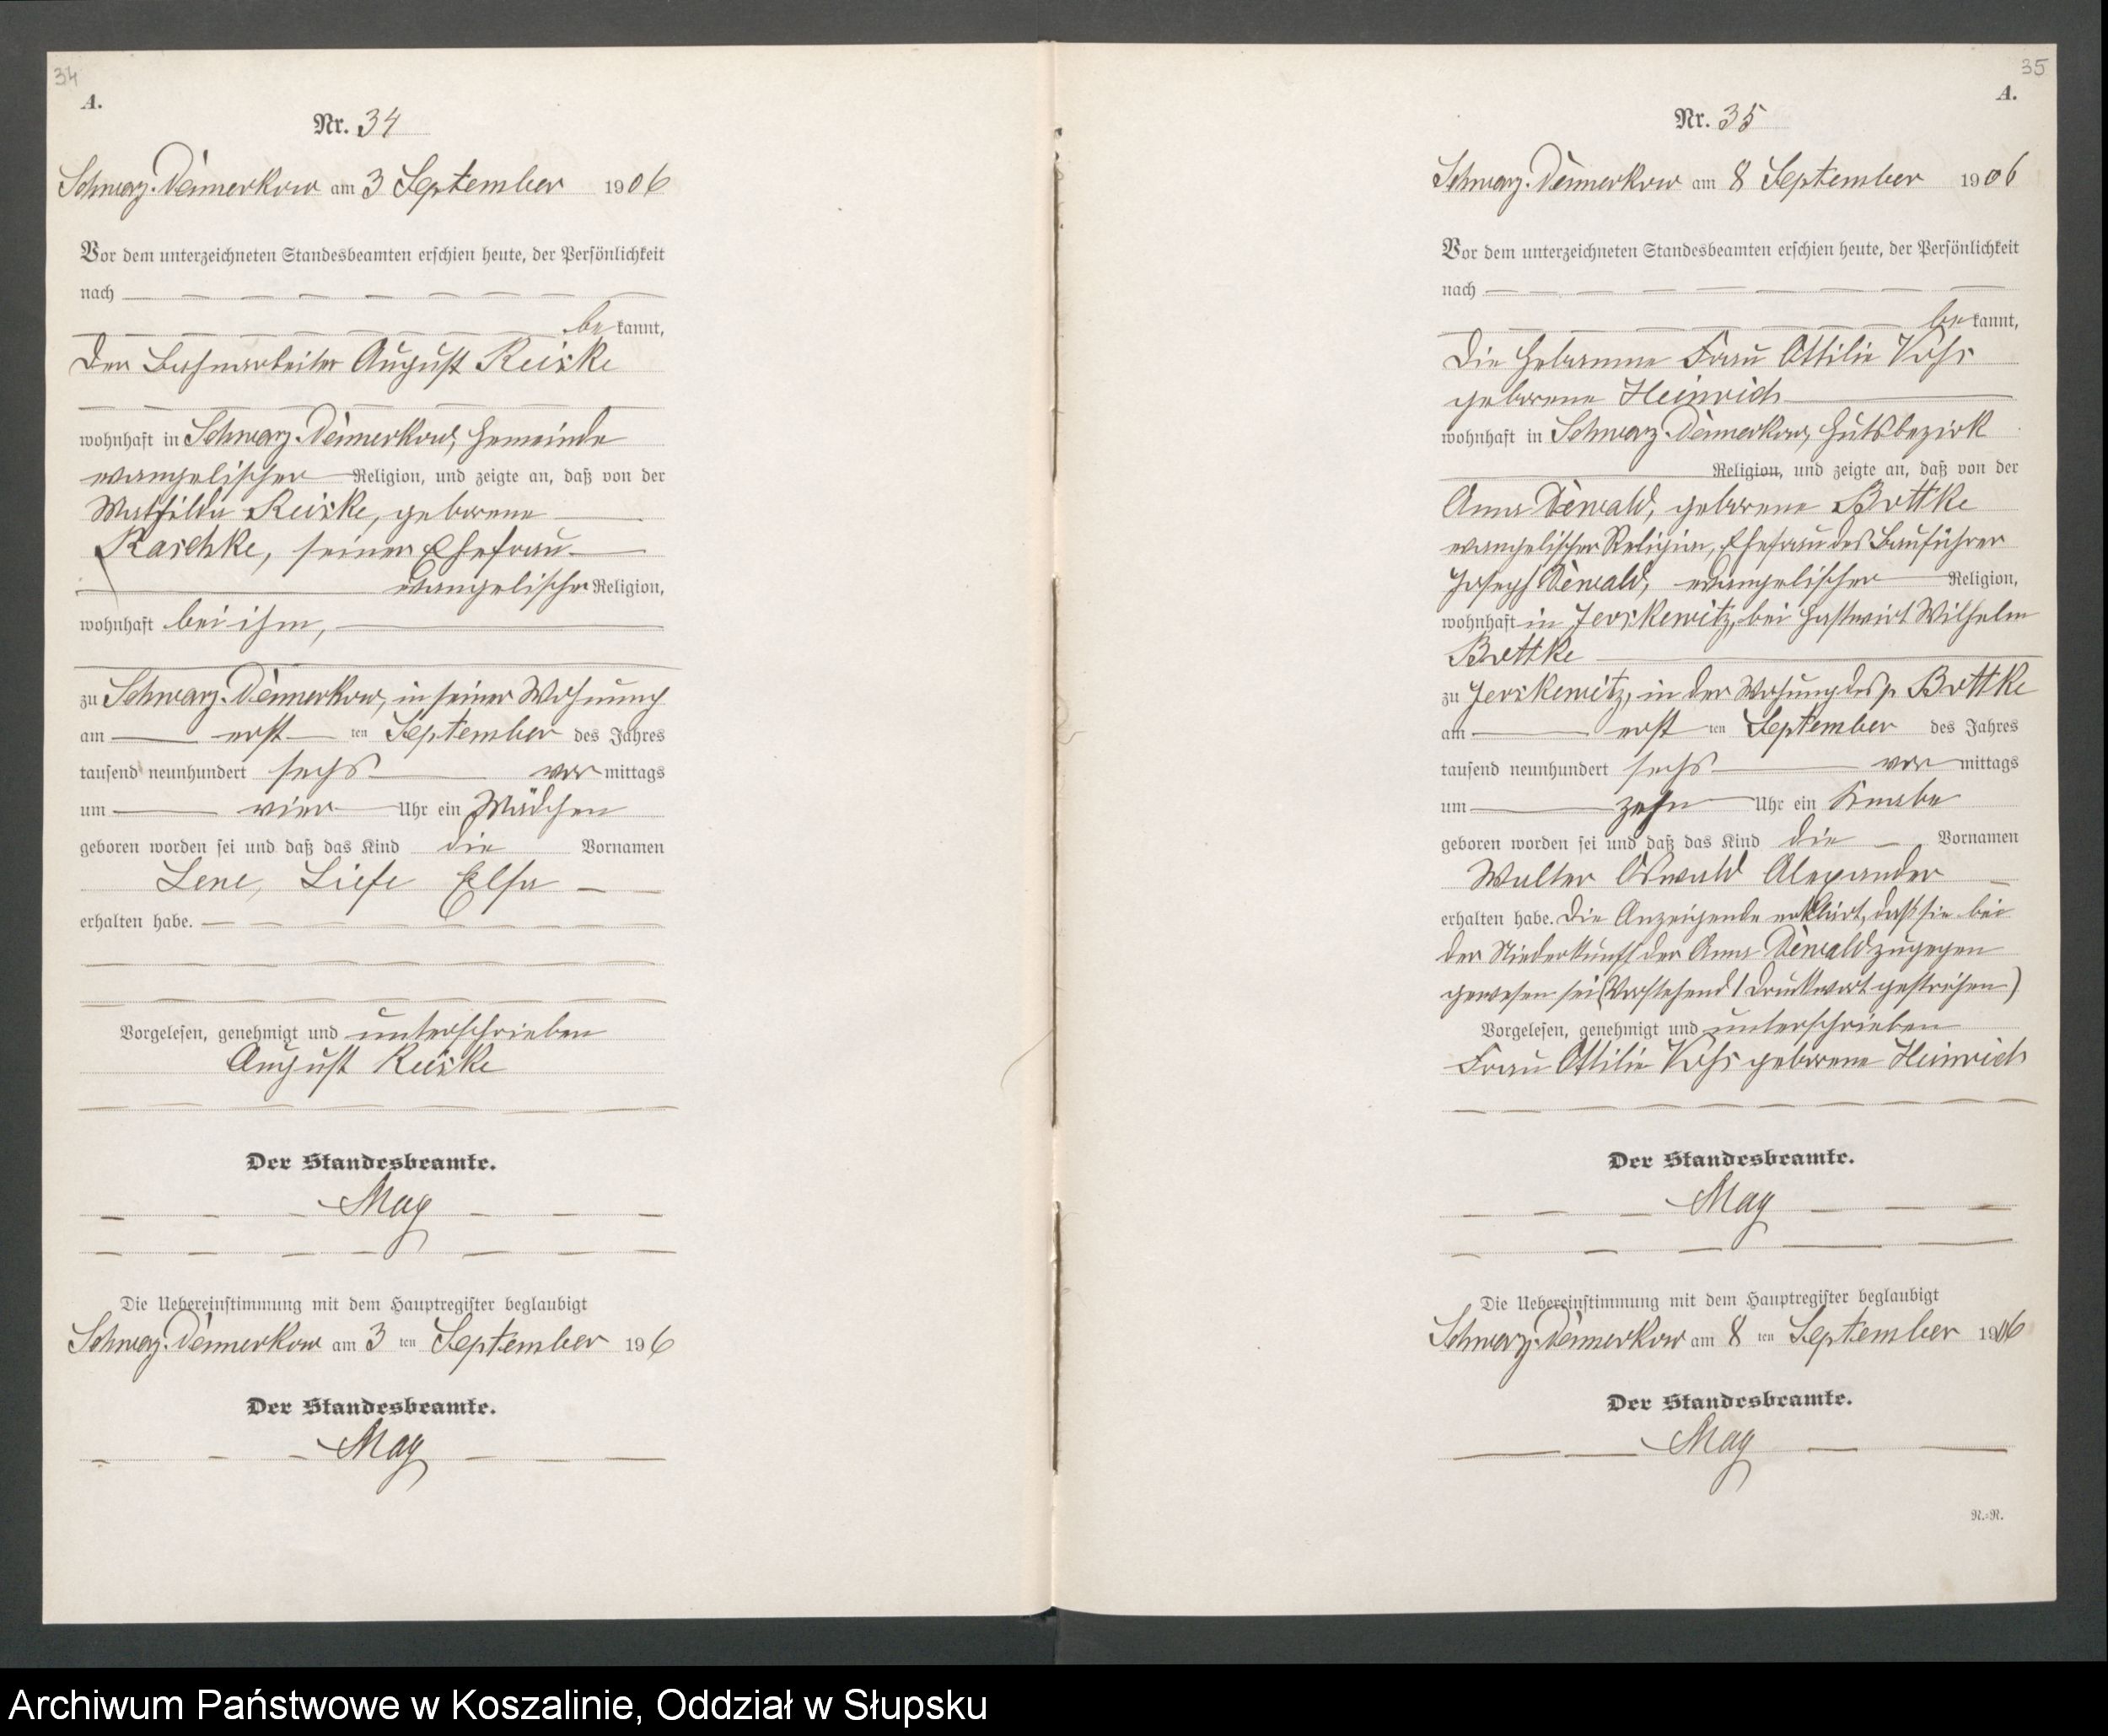 34
A.
Nr. 34
Schwarz-Dämerkow am 3 September 1906
Vor dem unterzeichneten Standesbeamten erschien heute, der Persönlichkeit
nach
bekannt,
Der Bahnarbeiter August Reiske
wohnhaft in Schwarz-Dämerkow, Gemeinde
evangelischer Religion, und zeigte an, daß von der
Mathilda Reiske, geborene
Raschke, seiner Ehefrau
evangelischer Religion,
wohnhaft bei ihm,
zu Schwarz-Dämerkow, in seiner Wohnung
am erst ten September des Jahres
tausend neunhundert sechs vor mittags
um vier Uhr ein Mädchen
geboren worden sei und daß das Kind die Vornamen
Lene, Liese Elsa
erhalten habe.
Vorgelesen, genehmigt und unterschrieben
August Reiske
Der Standesbeamte.
May
Die Uebereinstimmung mit dem Hauptregister beglaubigt
Schwarz-Dämerkow am 3 ten September 196
Der Standesbeamte.
May
35
A.
Nr. 35
Schwarz-Dämerkow am 8 September 1906
Vor dem unterzeichneten Standesbeamten erschien heute, der Persönlichkeit
nach
bekannt,
Die Hebamme Frau Ottilie Vohs
geborene Heinrich
wohnhaft in Schwarz-Dämerkow, Gutsbezirk
Religion, und zeigte an, daß von der
Anna geborene Bottke
evangelischer Religion, Ehefrau des Bauführer
Joseph evangelischer Religion,
wohnhaft in Jerskewitz, bei Gastwirt Wilhelm
Bottke
zu Jerskewitz, in der Wohnung des p. Bottke
am erst ten September des Jahres
tausend neunhundert sechs vor mittags
um zehn Uhr ein Knabe
geboren worden sei und daß das Kind die Vornamen
Walter Oswald Alexander
erhalten habe. Die Anzeigende erklärt, daß sie bei
der Niederkunft der Anna zugegen
gewesen sei (Vorstehend 1 Druckwort gestrichen)
Vorgelesen, genehmigt und unterschrieben
Frau Ottilie Vohs geborene Heinrich
Der Standesbeamte.
May
Die Uebereinstimmung mit dem Hauptregister beglaubigt
Schwarz-Dämerkow am 8 ten September 1906
Der Standesbeamte.
May
R.-R.
Archiwum Państwowe w Koszalinie, Oddział w Słupsku